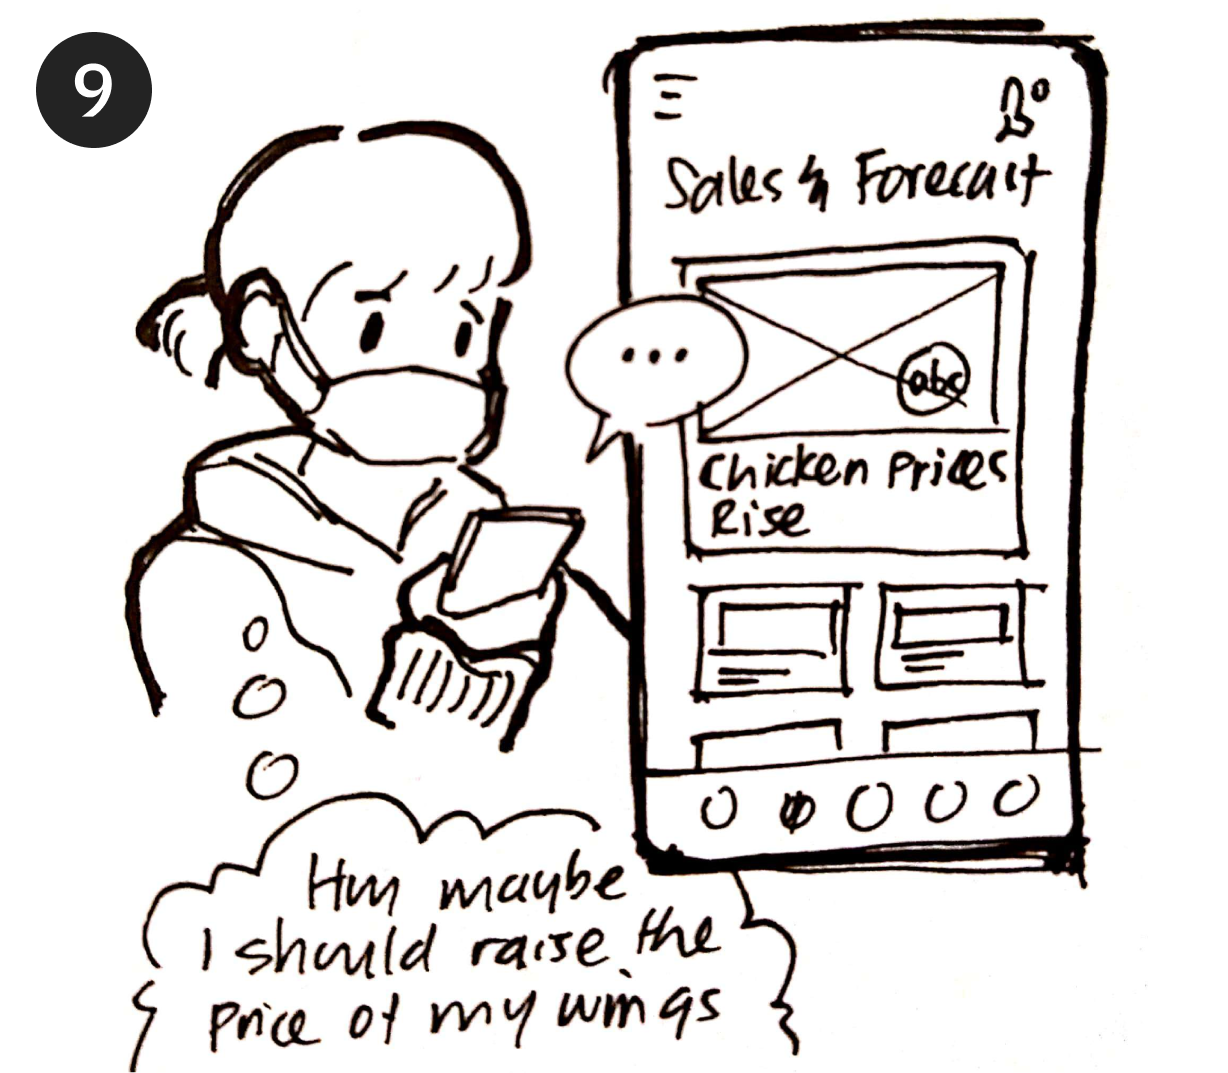 9
Sales & Forecast
...
abc
Chicken Prices
Rise
Hm maybe
I should raise the
price of my wings